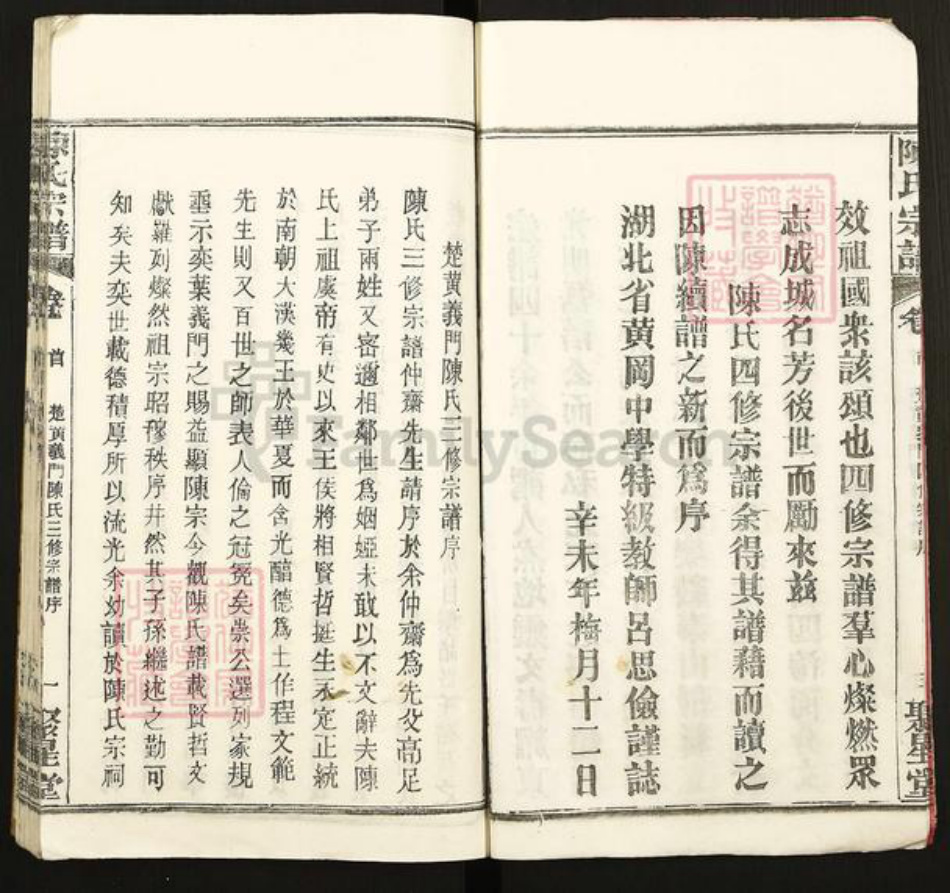 陳氏宗譜
效祖國衆該頌也四修宗譜羣心燦燃眾
志成城名芳後世而勵來茲
陳氏四修宗譜余得其譜藉而讀之
因陳續譜之新而爲序
湖北省黄岡中學特級教師呂思儉謹誌
辛未年梅月十二日
三 聚星堂
楚黄義門陳氏三修宗譜序
陳氏三修宗譜仲齋先生請序於余仲齋爲先父高足
弟子兩姓又密邇相鄰世爲姻婭未敢以不文辭夫陳
氏上祖虞帝有史以來王侯將相賢哲挺生永定正統
於南朝大漢幾王於華夏而含光醕德爲士作程文範
先生則又百世之師表人倫之冠冕矣崇公遺列家規
垂示奕葉義門之賜益顯陳宗今觀陳氏譜載賢哲文
獻羅列燦然祖宗昭穆秩序井然其子孫繼述之勤可
知矣夫奕世載德積厚所以流光余幼讀於陳氏宗祠
陳氏宗譜 卷 首 楚黄義門陳氏三修宗譜序 一 聚星堂
FamilySearch